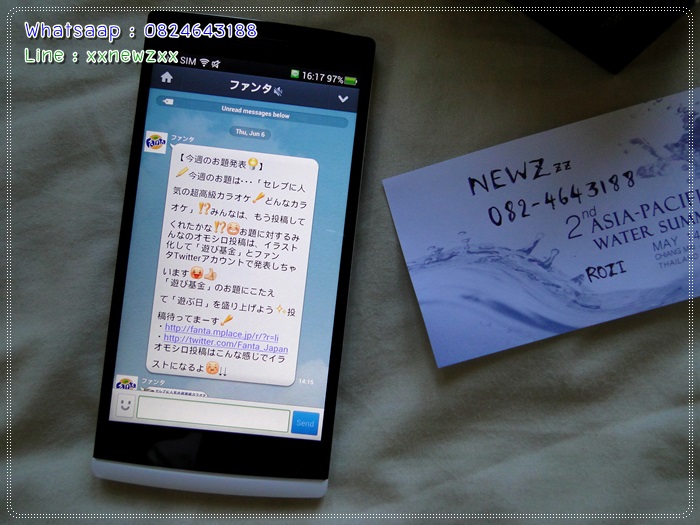 Whatsaap : 0824643188
Line : xxnewzxx
SIM 16:17 97%
ファンタ
Unread messages below
Thu, Jun 6
ファンタ
【今週のお題発表】
今週のお題は･･･「セレブに人
気の超高級カラオケどんなカラ
オケ」⁉みんなは、もう投稿して
くれたかな⁉お題に対するみ
んなのオモシロ投稿は、イラスト
化して「遊び基金」とファン
タTwitterアカウントで発表しちゃ
います
「遊び基金」のお題にこたえ
て「遊ぶ日」を盛り上げよう投
稿待ってまーす
・http://fanta.mplace.jp/r/?r=li
・http://twitter.com/Fanta_Japan
オモシロ投稿はこんな感じでイラ
ストになるよ↓↓
14:15
ファンタ
Send
NEWZzz
082-4643188
2nd ASIA-PACIF
WATER SUM
MAY
CHIANG
THAILAN
ROZI